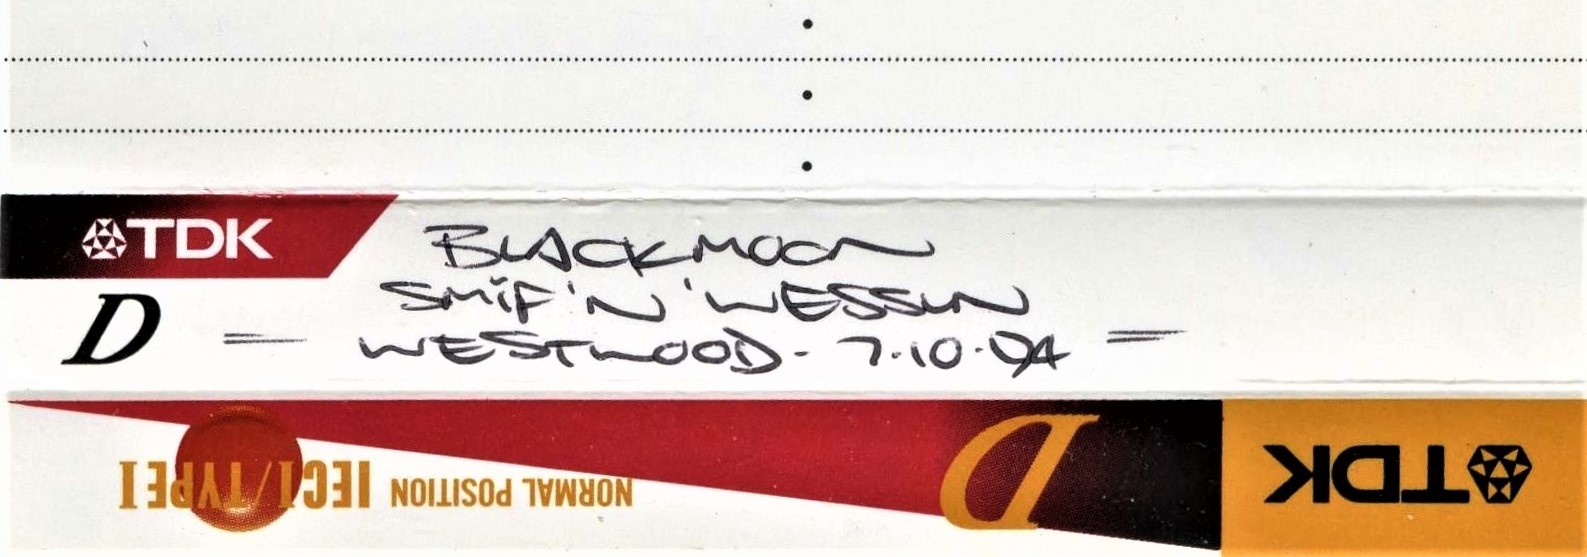 TDK
BLACKMOON
D
SMIF 'N' WESSUN
WESTWOOD - 7.10.94
NORMAL POSITION IECI/TYPE I
D
TDK